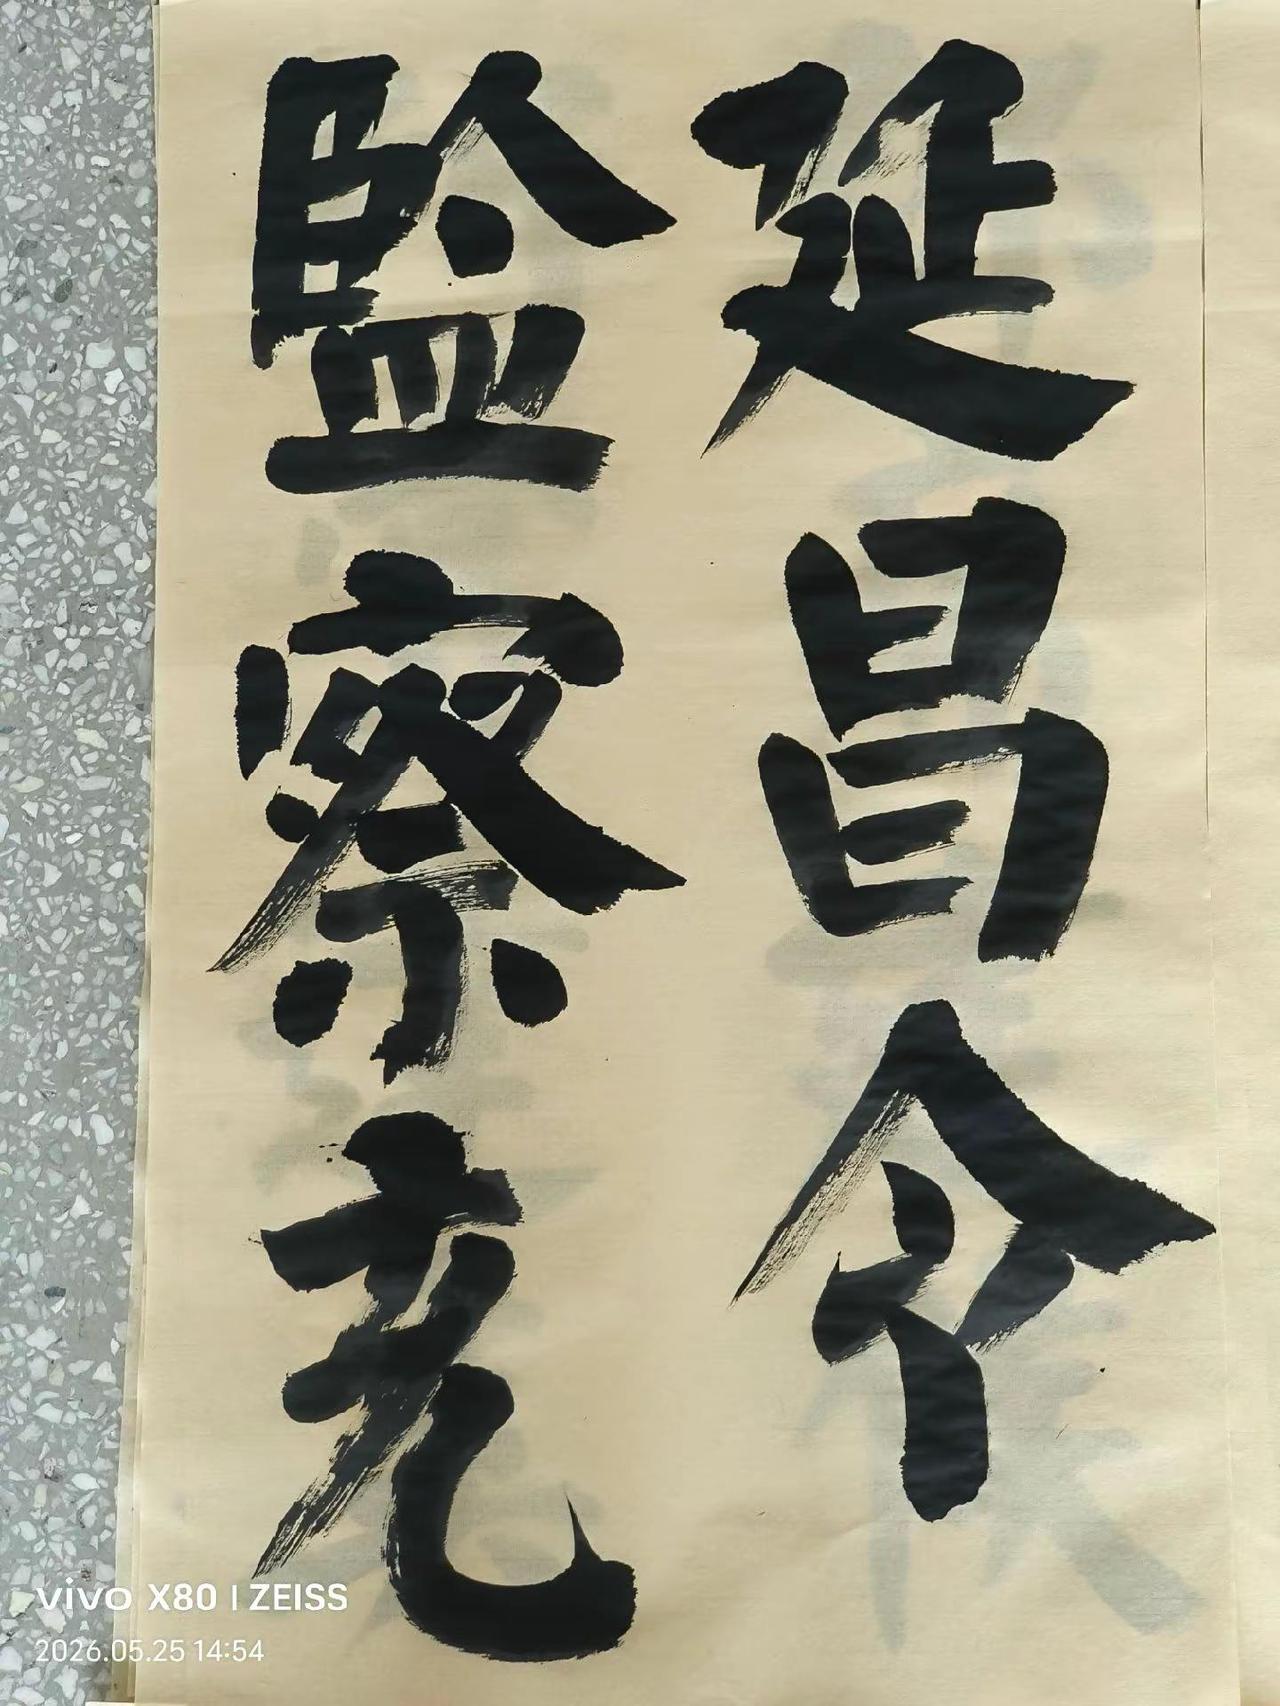 延昌令
監察充
vivo X80 | ZEISS
2026.05.25 14:54